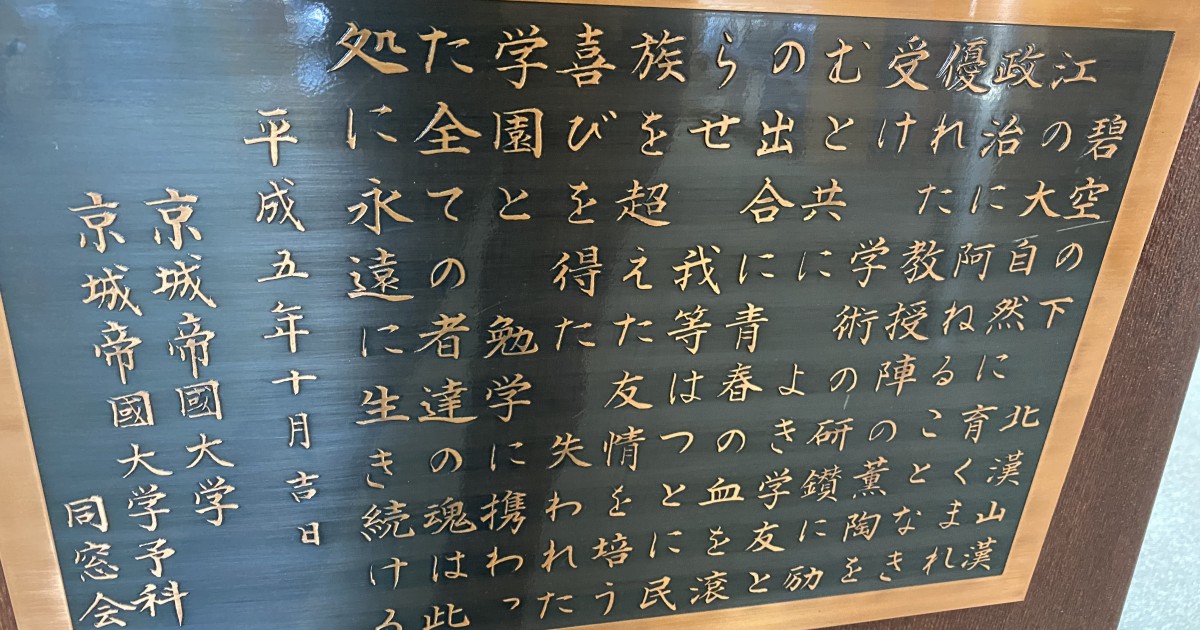 碧空の下 北漢山漢
江の大自然に育くまれ
政治に阿ねることなき
優れた教授陣の薫陶を
受け 学術の研鑽に励
むと共に よき学友と
の出合に青春の血を滾
らせ 我等はつとに民
族を超えた友情を培う
喜びを得た 失われた
学園と 勉学に携わっ
た全ての者達の魂は此
処に永遠に生き続ける
平成五年十月吉日
京城帝國大学
京城帝國大学予科
同窓会